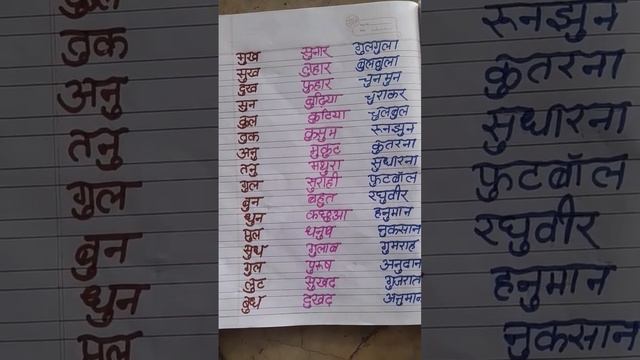 तुक
अनु
तनु
गुल
बुन
धुन
मुल
मुख सुनार गुलगुला
सुख लुहार बुलबुला
दुख फुहार चुनमुन
सुन बुढ़िया चुराकर
कुल कुटिया चुलबुल
तुक कुसुम रूनझुन
अनु मुकुट कुतरना
तनु मथुरा सुधारना
गुल सुराही फुटबॉल
बुन बहुत रघुवीर
धुन कछुआ हनुमान
मुल धनुष नुकसान
सुध गुलाब गुमराह
गुल पुरुष अनुदान
लुट सुखद गुजरात
बुध दुखद अनुमान
रूनझुन
कुतरना
सुधारना
फुटबॉल
रघुवीर
हनुमान
नुकसान